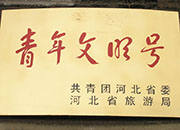 青年文明号
共青团河北省委
河北省旅游局